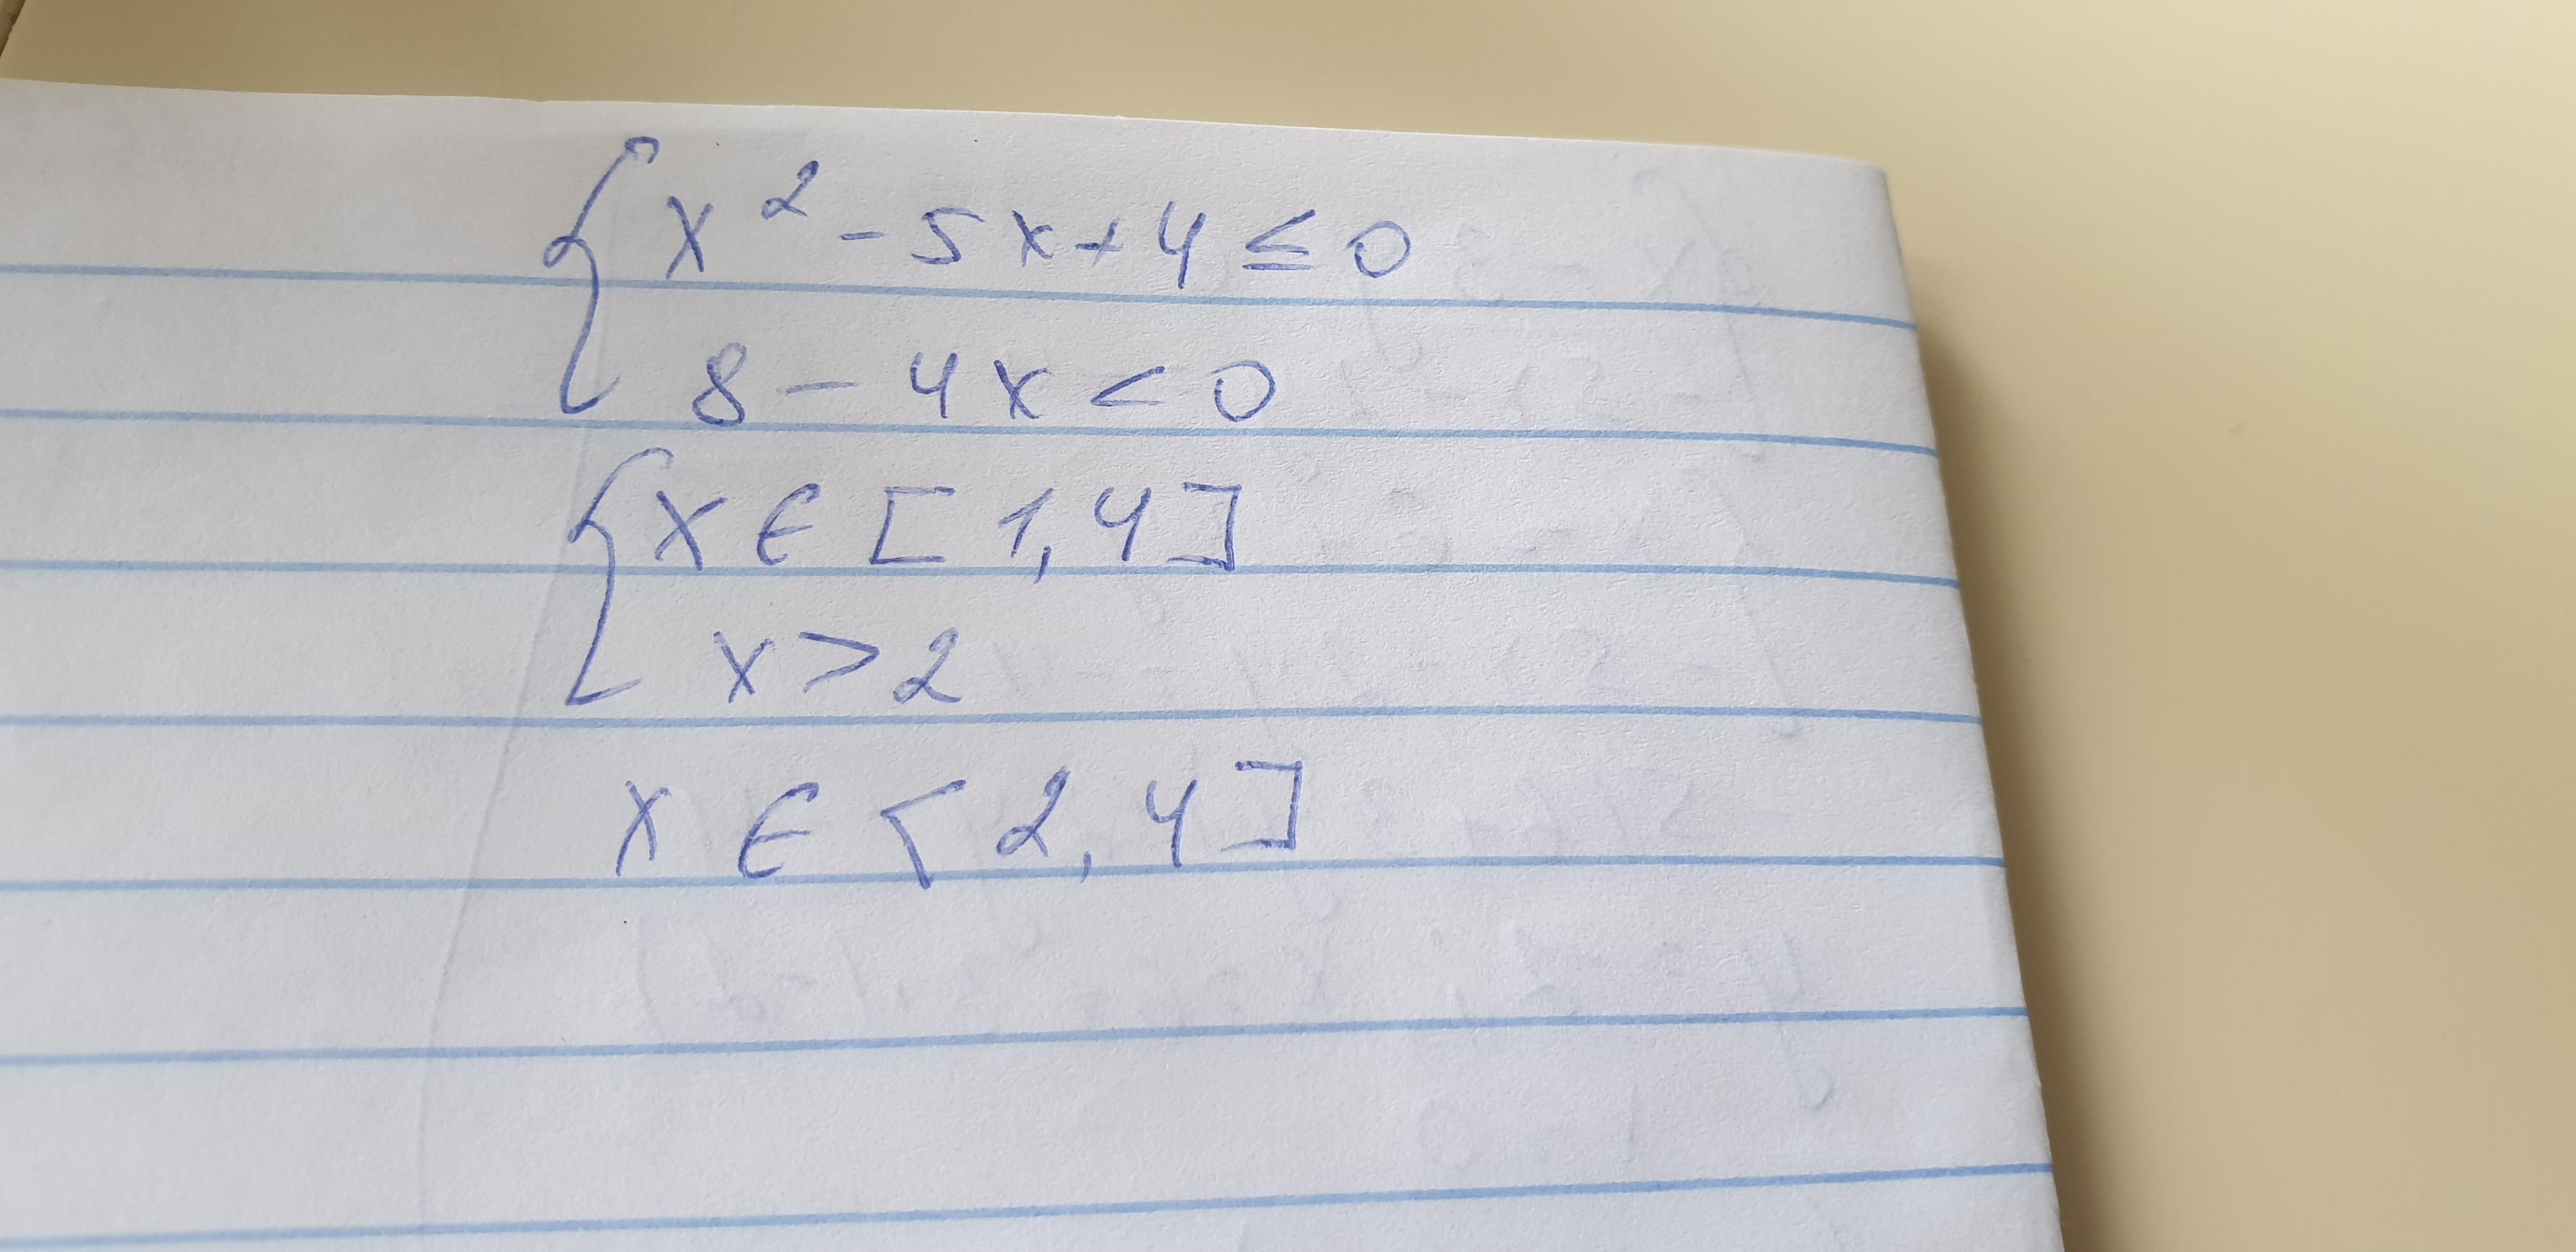 {x² - 5x + 4 ≤ 0
8 - 4x < 0
{x ∈ [1, 4]
x > 2
x ∈ ⟨2, 4]